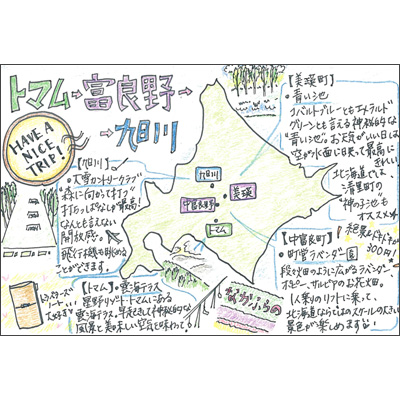 トマム→富良野→
→九日川
HAVE A
NICE
TRIP!
【美瑛町】
・青い池
コバルトブルーともエメラルド
グリーンとも言える神秘的な
"青い池"。お天気がいい日は
空が水面に映って最高に
きれい!
北海道では、
清里町の
"神の子池"も
オススメ☆
【九日川】
・大雪カントリークラブ
"森に向かって打つ"
打ちっぱなしが最高!
なんとも言えない
開放感。
飛行機も眺める
ことができます。
九日川
美瑛
中富良野
トマム
【中富良野町】
・町営ラベンダー園
段々畑のように広がるラベンダー、
ポピー、サルビアのお花畑。
1人乗りのリフトに乗って、
北海道ならではのスケールの大きい
景色が楽しめます
300円!
【トマム】・雲海テラス
星野リゾート・トマムにある
雲海テラス。早起きして神秘的な
風景と美味しい空気を味わって!
なかふらの
大好き